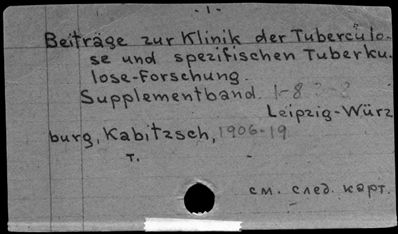 - 1 -
Beiträge zur Klinik der Tuberculo-
se und spezifischen Tuberku-
lose-Forschung.
Supplementband. 1-8
Leipzig-Würz
burg, Kabitzsch, 1906-19
т.
см. след. карт.